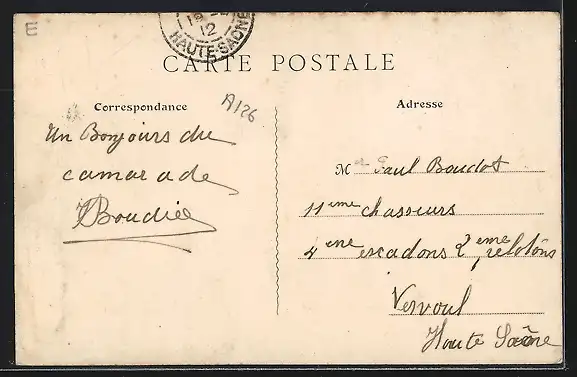 E
12
HAUTE-SAÔNE
CARTE POSTALE
Correspondance
A126
Adresse
Un Bonjours du
camarade
Boudié
M Paul Boudot
11eme chasseurs
4eme escadons 2eme pelotons
Vesoul
Haute Saône